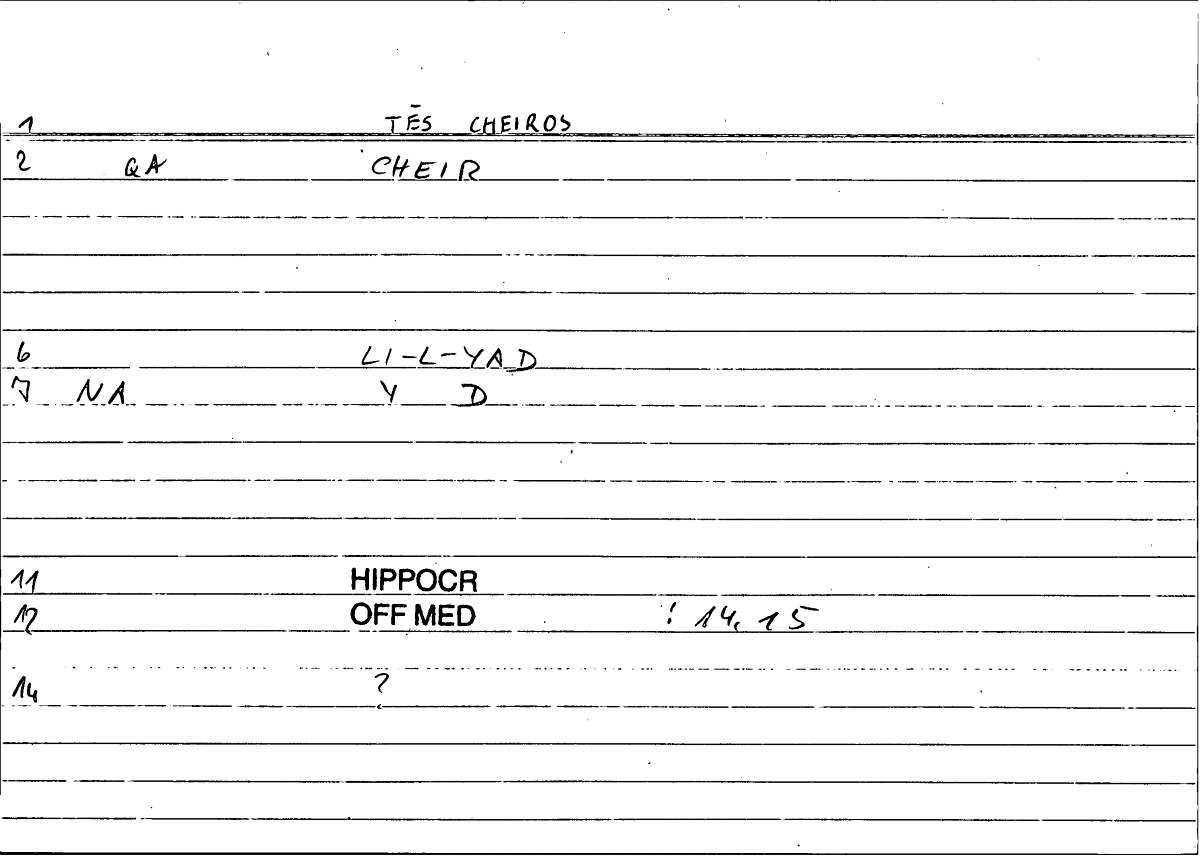 1 TĒS CHEIROS
2 QA CHEIR
6 LI-L-YAD
7 NA Y D
11 HIPPOCR
12 OFF MED : 14, 15
14 ?